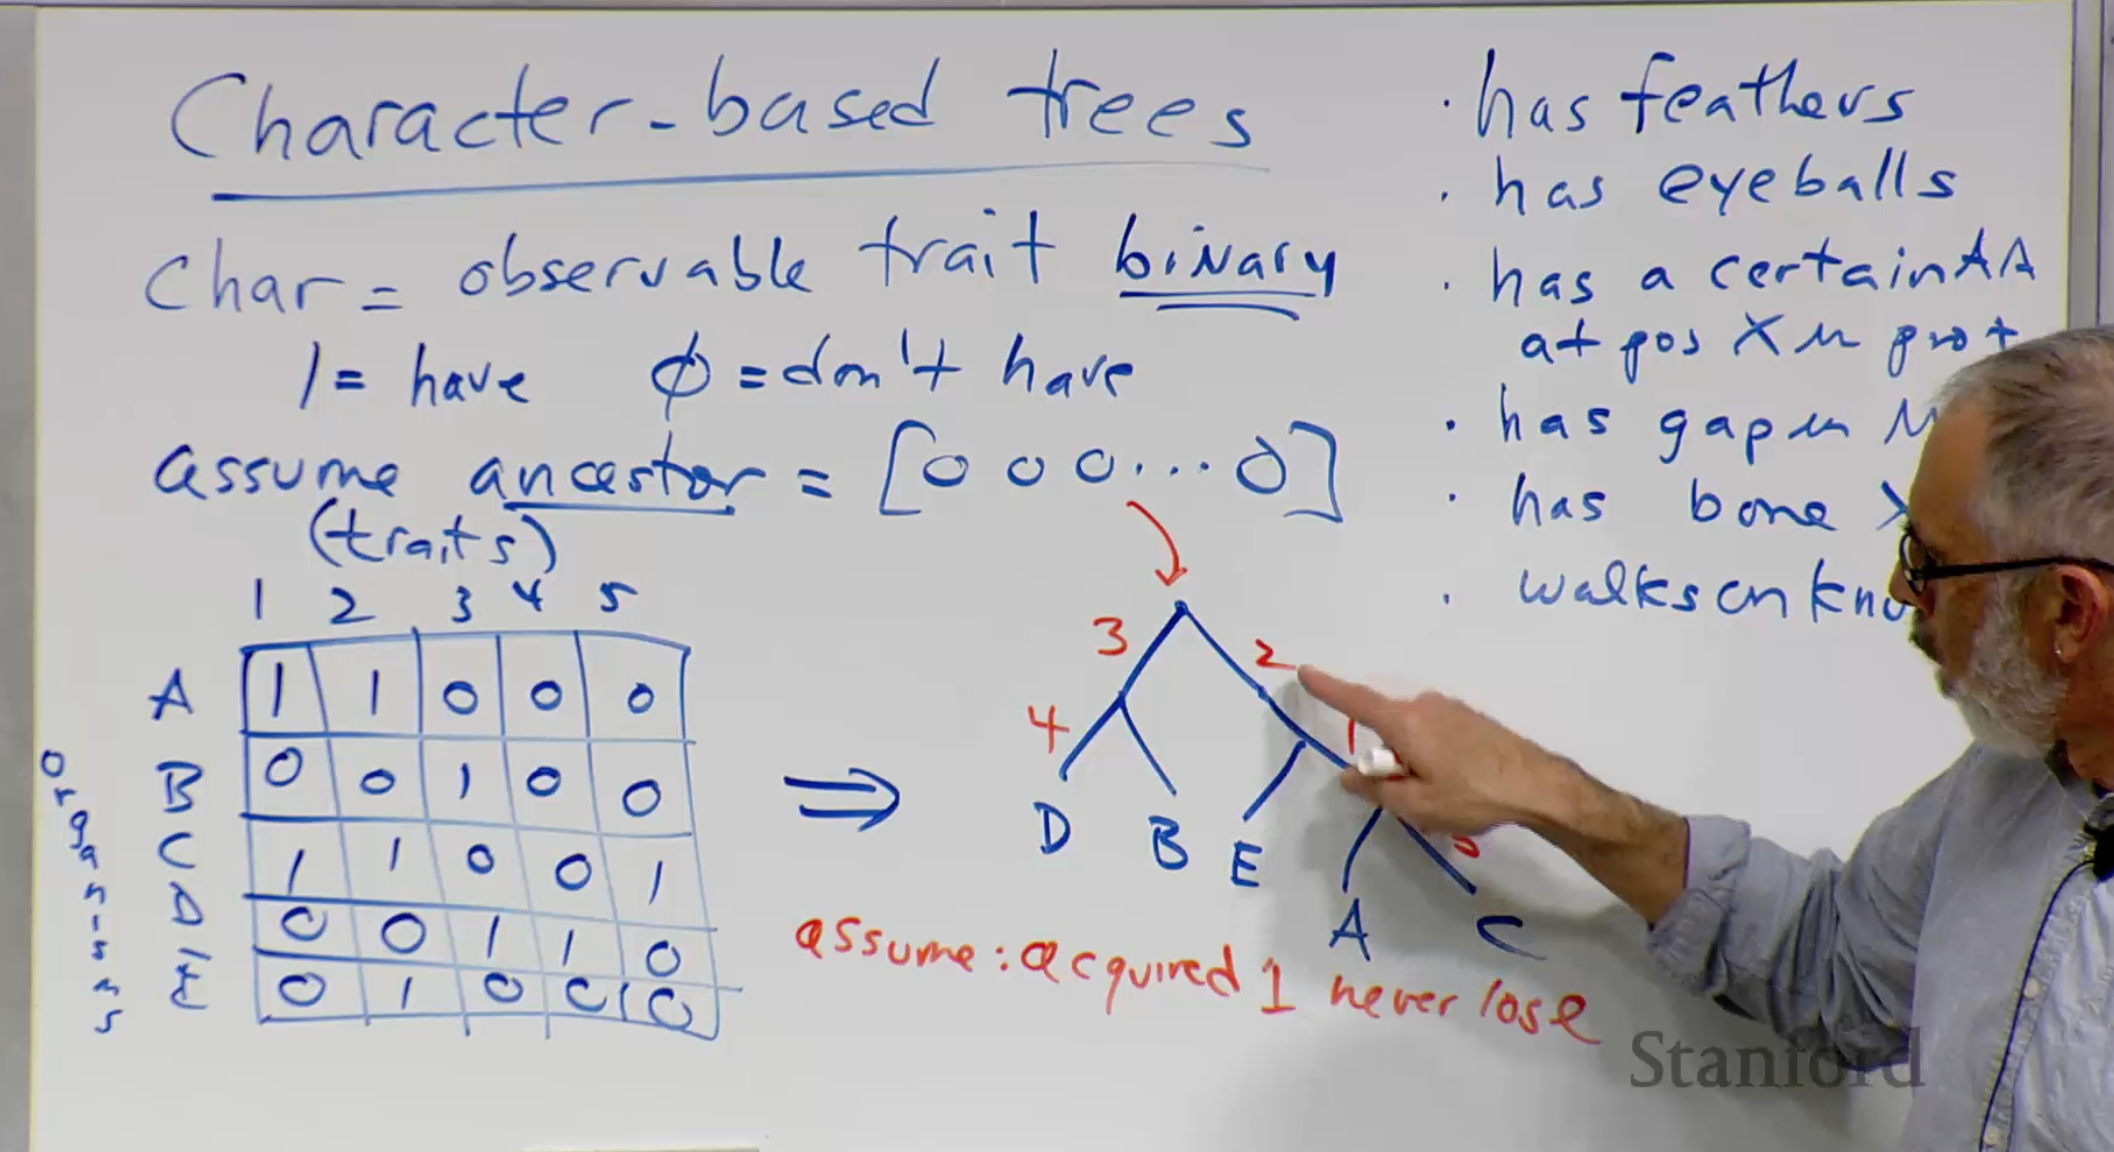 Character-based trees
char = observable trait binary
1 = have ϕ = don't have
assume ancestor = [0 0 0 ... 0]
(traits)
1 2 3 4 5
A 1 1 0 0 0
B 0 0 1 0 0
C 1 1 0 0 1
D 0 0 1 1 0
E 0 1 0 0 0
organisms
⇒
3 2
4 1
D B E
A C
assume: acquired 1 never lose
· has feathers
· has eyeballs
· has a certain AA
at pos X in prot
· has gap in
· has bone
· walks on
Stanford